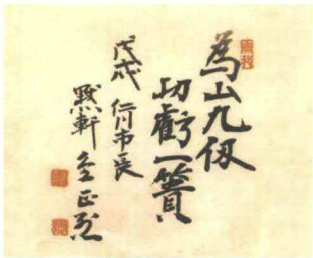 為山九仞
功虧一簣
戊戌 市長
默軒 金正烈